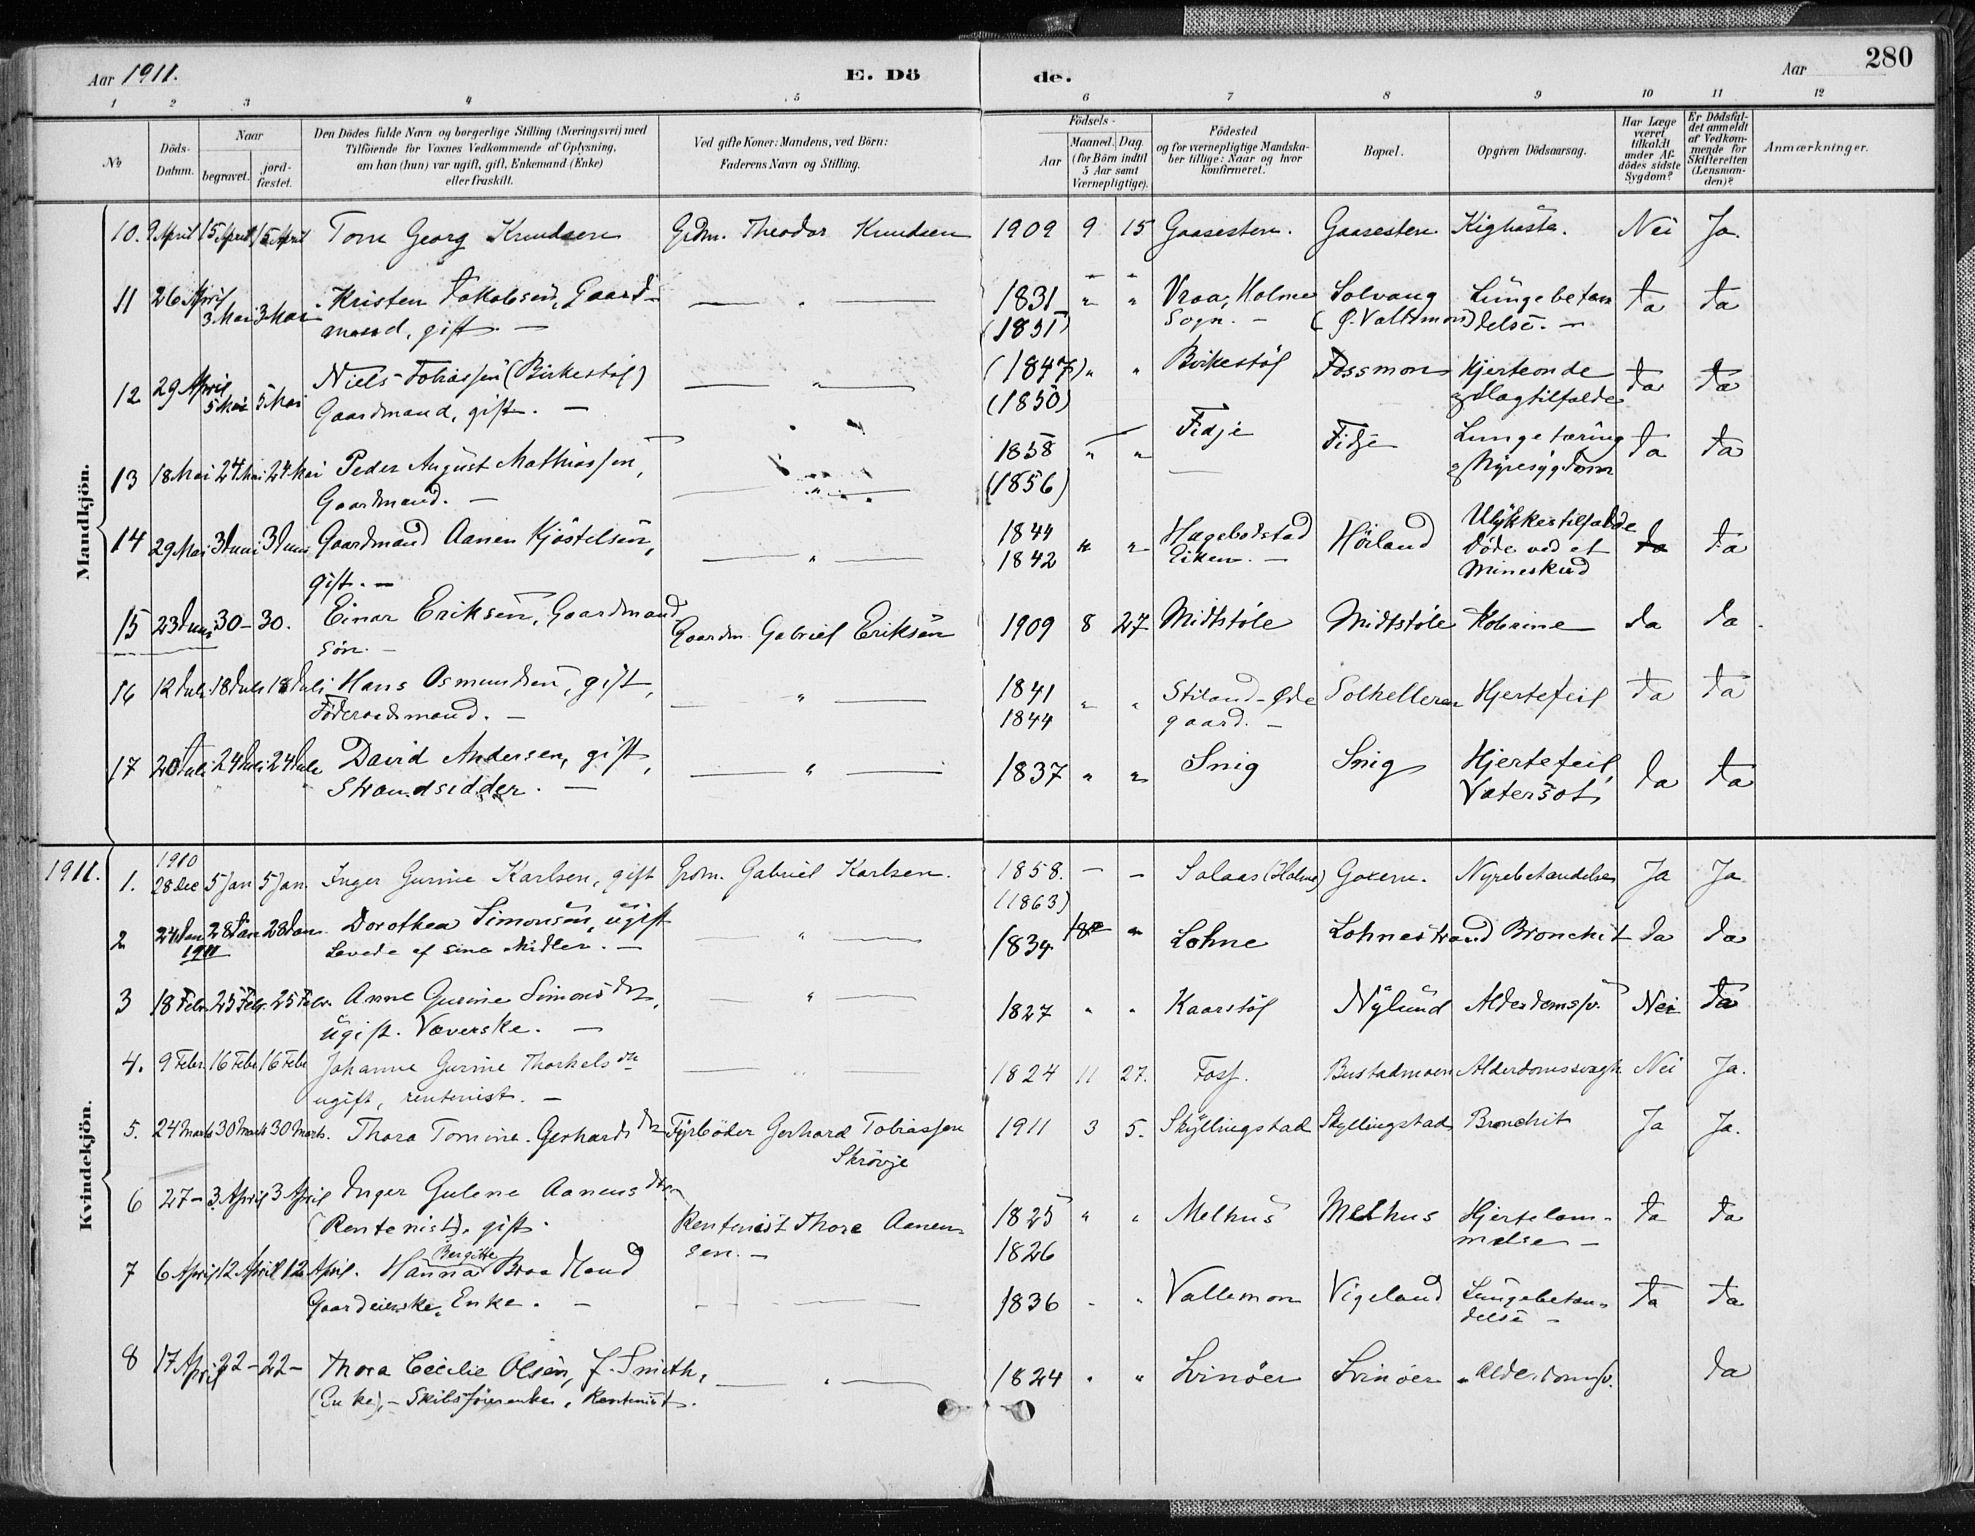 Aar 1911. E. Dö de. Aar 280
1 2 3 4 5 6 7 8 9 10 11 12
No Döds-Datum. Naar begravet. jord-fæstet.
Den Dödes fulde Navn og borgerlige Stilling (Næringsvei) med
Tilföiende for Voxnes Vedkommende af Oplysning,
om han (hun) var ugift, gift, Enkemand (Enke)
eller fraskilt.
Ved gifte Koner: Mandens, ved Börn:
Faderens Navn og Stilling.
Födsels-
Aar Maaned. Dag.
(for Börn indtil
5 Aar samt
Værnepligtige).
Födested
og for værnepligtige Mandska-
ber tillige: Naar og hvor
konfirmeret.
Bopæl.
Opgiven Dödsaarsag.
Har Læge
været
tilkaldt
under Af-
dödes sidste
Sygdom?
Er Dödsfal-
det anmeldt
af Vedkom-
mende for
Skifteretten
(Lensman-
den)?
Anmærkninger.
Mandkjön.
10. 9 April 15 April 15 April Tom Georg Knudsen Grdm. Theodor Knudsen 1909 9 15 Gaasesten. Gaasesten Kighoste. Nei Ja.
11 26 April 3 Mai 3 Mai Kristen Jakobsen, Gaard- — " — 1831 " " Vraa, Holme Solvang Lungebetæn Ja Ja
mand, gift. — (1831) Sogn. — (Ø. Vallemon) delse. —
12 29 April 5 Mai 5 Mai Niels Tobiassen (Birkestøl) — " — (1847) " " Birkestøl Fossmon Hjerteonde Ja Ja
Gaardmand, gift. — (1850) & Slagtilfælde
13 18 Mai 24 Mai 24 Mai Peder August Mathiassen, — " — 1858 " " Fidje Fidje Lungetæring Ja Ja
Gaardmand. — (1856) & Nyresygdom
14 29 Mai 3 Juni 3 Juni Gaardmand Aanen Kjöstelsen, — " — 1844 " " Hægebodstad Höiland Ulykkestilfælde Ja Ja
gift. — 1842 Eiken. — Døde ved et
Mineskud
15 23 Juni 30 - 30. Einar Eriksen, Gaardmand Gaardm. Gabriel Eriksen 1909 8 27 Midtstøle Midtstøle Kolerine Ja Ja.
søn. —
16 12 Juli 18 Juli 18 Juli Hans Osmundsen, gift, — " — 1841 " " Stiland-Øde Solkelleren Hjertefeil Ja Ja
Føderaadsmand. — 1844 gaard. —
17 20 Juli 24 Juli 24 Juli David Andersen, gift, — " — 1837 " " Snig Snig Hjertefeil, Ja Ja
Strandsidder. — Vatersot
Kvindekjön.
1911. 1. 1910 28 Dec 5 Jan 5 Jan. Inger Gurine Karlsen, gift Grdm. Gabriel Karlsen. 1858. — — Salaas (Holme) Goxem. Nyrebetændelse Ja Ja
(1863)
2 24 Jan 28 Jan 28 Jan Dorothea Simonsen, ugift — " — 1834 " Lohne Lohnestrand Bronchit Ja Ja
1911 Levede af sine Midler. —
3 18 Febr. 25 Febr. 25 Febr. Anne Gurine Simonsdtr, — " — 1827 " " Kaarstøl Nylund Alderdomssv. Nei Ja
ugift. Væverske. —
4. 9 Febr. 16 Febr 16 Febr Johanne Gurine Thorkelsdtr — " — 1824 11 27. Foss. Bustadmoen Alderdomssvagh. Nei Ja.
ugift, rentenist. —
5. 24 Marts 30 Marts 30 Marts. Thora Tomine Gerhardsdtr Fyrböder Gerhard Tobiassen 1911 3 5. Skyllingstad Skyllingstad Bronchit Ja Ja.
Skrövje
6 27 - 3 April 3 April Inger Gulene Aanensdtr
(Rentenist), gift. Rentenist Thore Aanen- 1825 " " Melhus Melhus Hjertelam- Ja Ja
sen. — 1826 melse —
7 6 April 12 April 12 April. Hanna Bergitte Braa Hand
Gaardeierske, Enke. — — 1836 " " Vallemon Vigeland Lungebetæn- Ja Ja
delse —
8 17 April 22 - 22 - Thora Cecilie Olsen, f. Smith, — " — 1824 " " Svinöer Svinöer Alderdomssv. Ja
(Enke), - Skibsførerenke, Rentenist.